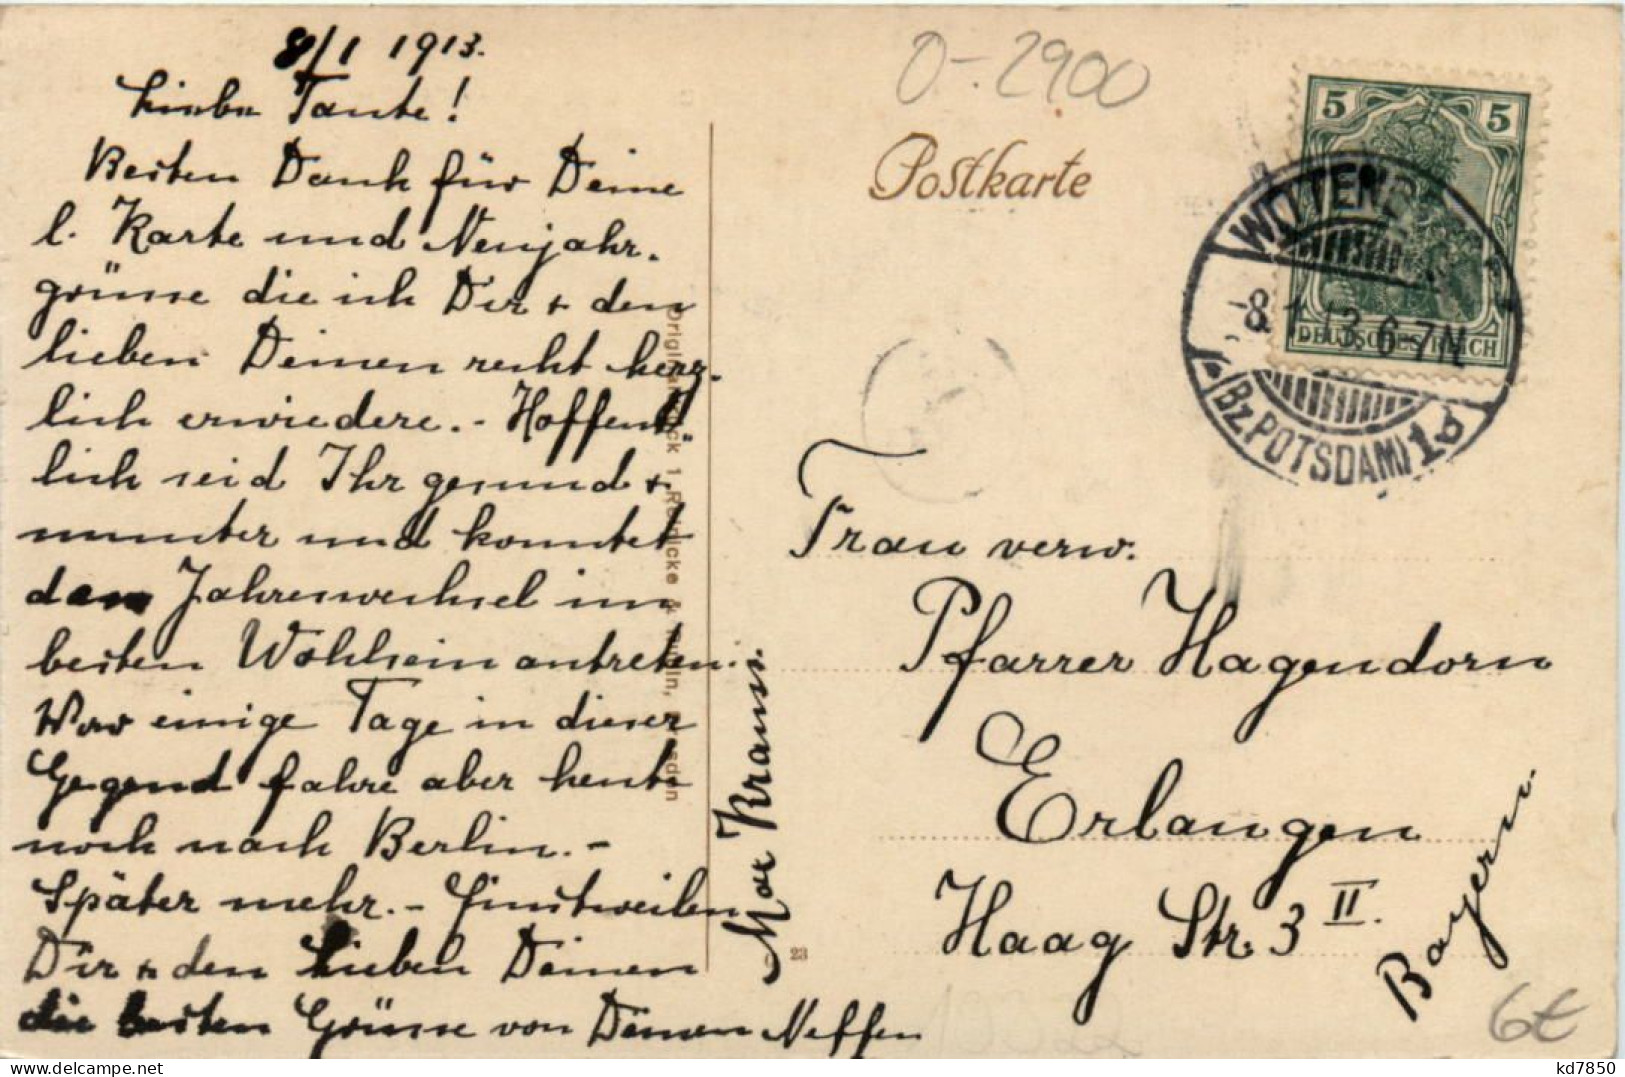 8/1 1913.
Liebe Tante!
Besten Dank für Deine
l. Karte und Neujahr-
grüsse die ich Dir + den
lieben Deinen recht herz-
lich erwiedere. - Hoffent-
lich seid Ihr gesund +
munter und konntet
den Jahreswechsel im
besten Wohlsein antreten.
War einige Tage in dieser
Gegend fahre aber heute
noch nach Berlin. -
Später mehr. - Einstweilen
Dir + den Lieben Deinen
die besten Grüsse von Deinem Neffen
Max Krauss.
O-2900
Postkarte
5 5
DEUTSCHES REICH
WITTENB
-8.1.13.6-7N
(Bz. POTSDAM) 1d
Frau verw.
Pfarrer Hagendorn
Erlangen
Haag Str. 3 II.
Bayern.
Reinicke &
23
6€
kd7850